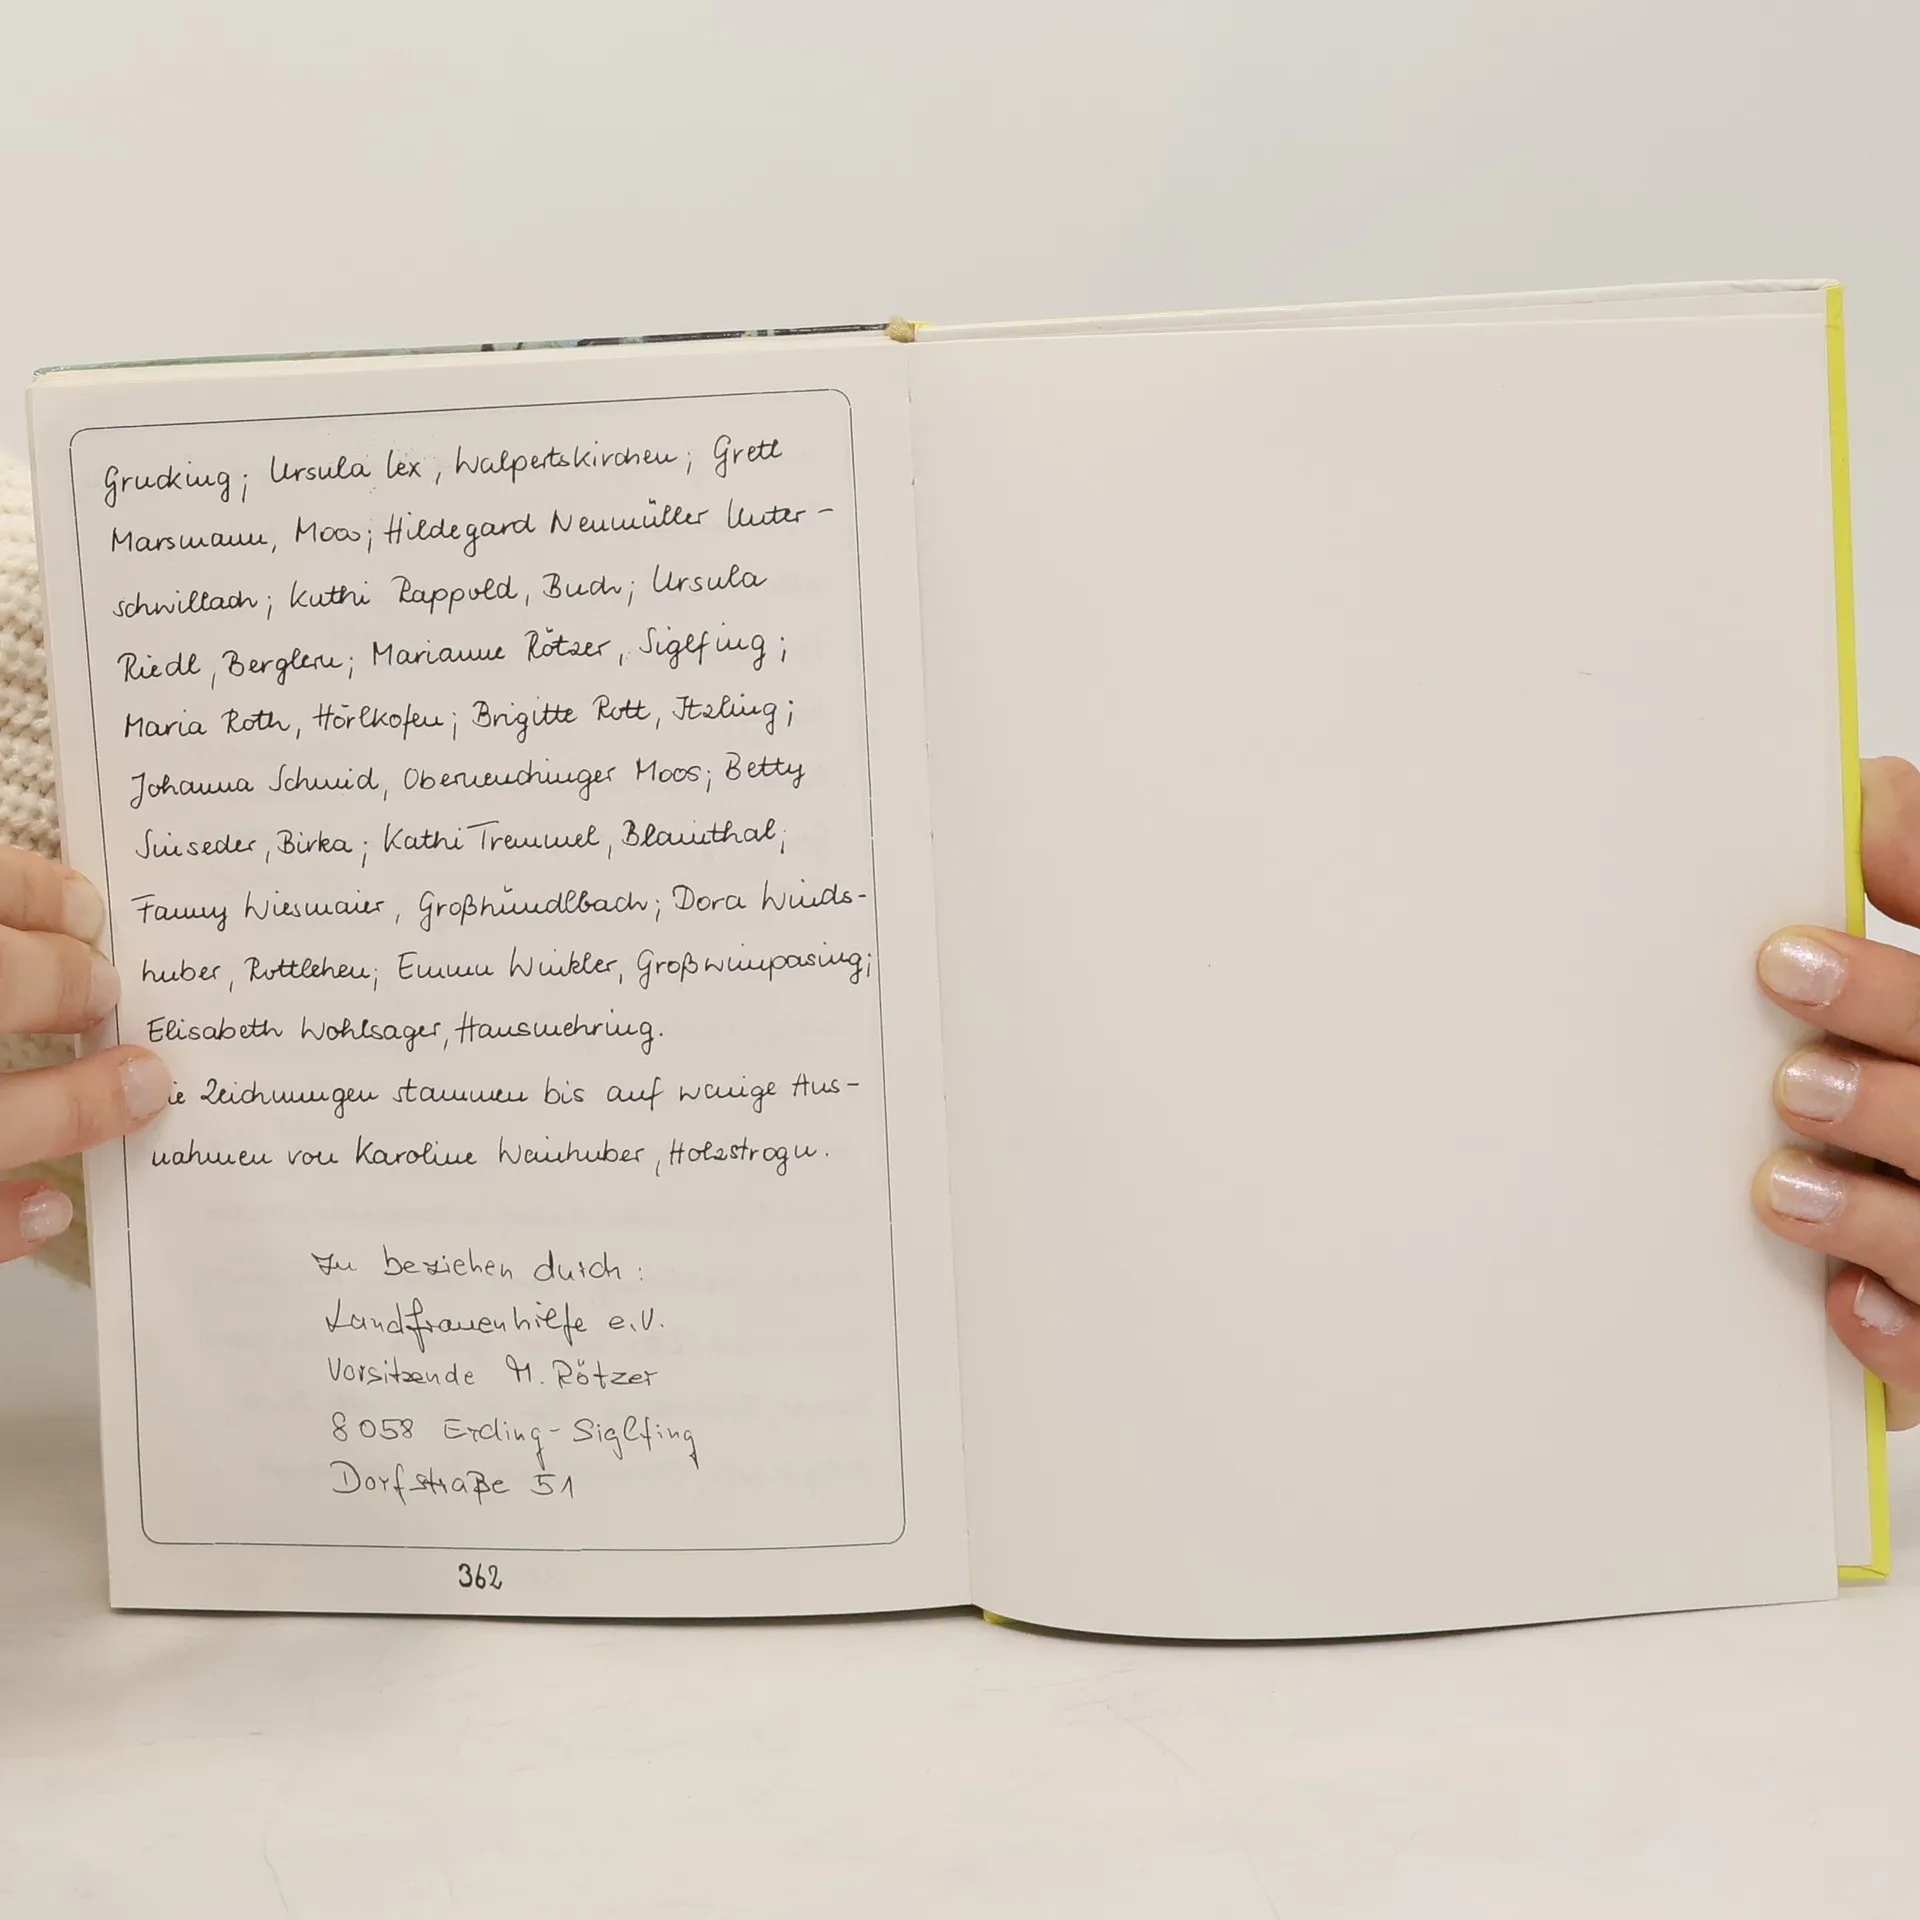 Grucking; Ursula Lex, Walpertskirchen; Gretl
Marsmann, Moos; Hildegard Neumüller Unter-
schwillach; Kathi Rappold, Buch; Ursula
Riedl, Berglern; Marianne Rötzer, Siglfing;
Maria Roth, Hörlkofen; Brigitte Rott, Itzling;
Johanna Schmid, Oberneuchinger Moos; Betty
Sinseder, Birka; Kathi Tremmel, Blainthal;
Fanny Wiesmaier, Großhündlbach; Dora Winds-
huber, Rottlehen; Emma Winkler, Großwimpasing;
Elisabeth Wohlsager, Hausmehring.
ie Zeichnungen stammen bis auf wenige Aus-
nahmen von Karoline Wainhuber, Holzstrogn.
Zu beziehen durch:
Landfrauenhilfe e.V.
Vorsitzende M. Rötzer
8058 Erding-Siglfing
Dorfstraße 51
362